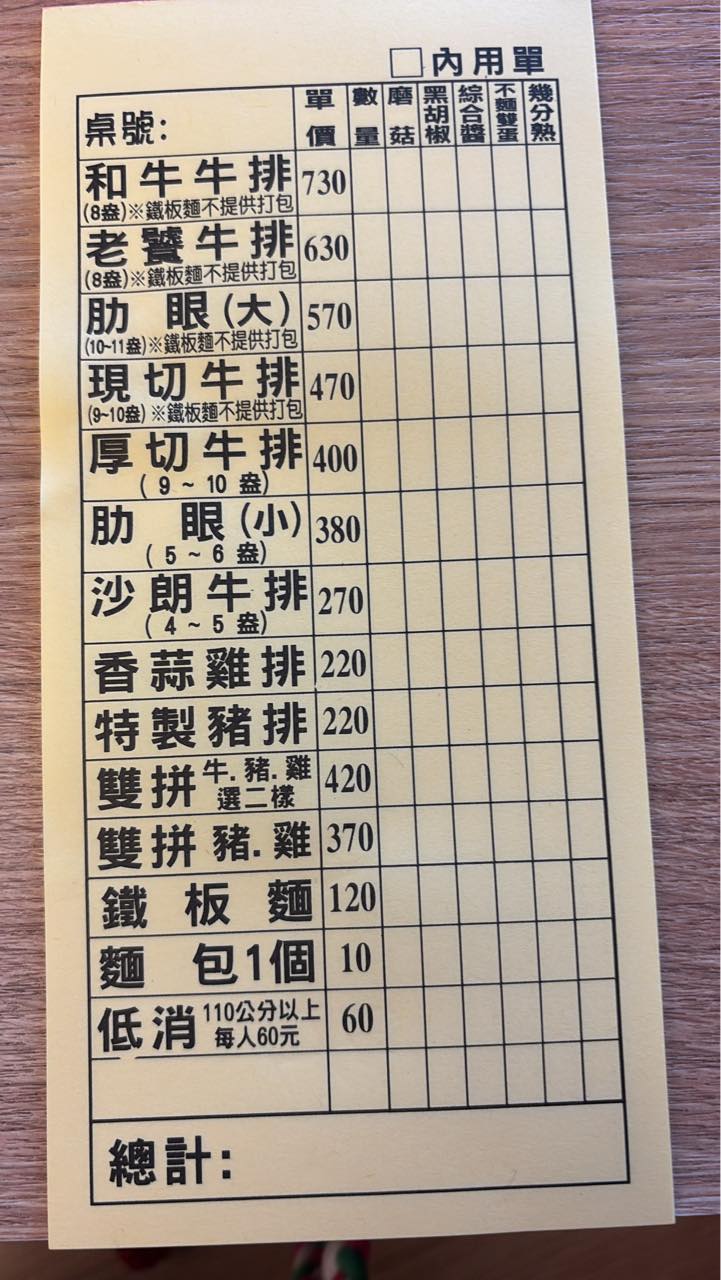 □內用單
桌號: 單價 數量 磨菇 黑胡椒 綜合醬 不麵雙蛋 幾分熟
和牛牛排 730
(8盎)※鐵板麵不提供打包
老饕牛排 630
(8盎)※鐵板麵不提供打包
肋眼(大) 570
(10~11盎)※鐵板麵不提供打包
現切牛排 470
(9~10盎)※鐵板麵不提供打包
厚切牛排 400
(9~10盎)
肋眼(小) 380
(5~6盎)
沙朗牛排 270
(4~5盎)
香蒜雞排 220
特製豬排 220
雙拼 牛.豬.雞 選二樣 420
雙拼 豬.雞 370
鐵板麵 120
麵包1個 10
低消 110公分以上 每人60元 60
總計: